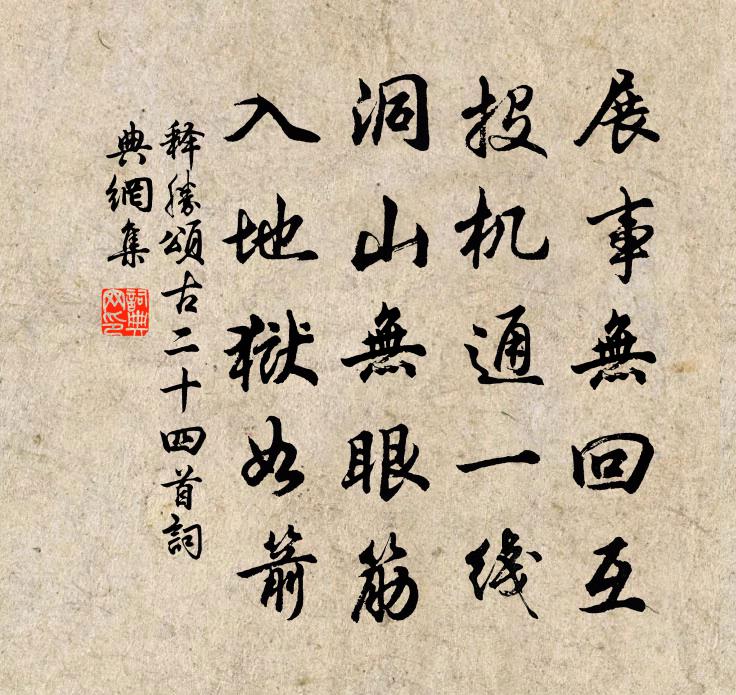 展事無回互
投机通一线
洞山無眼筋
入地獄如箭
释勝頌古二十四首詞
典網集
詞典網印